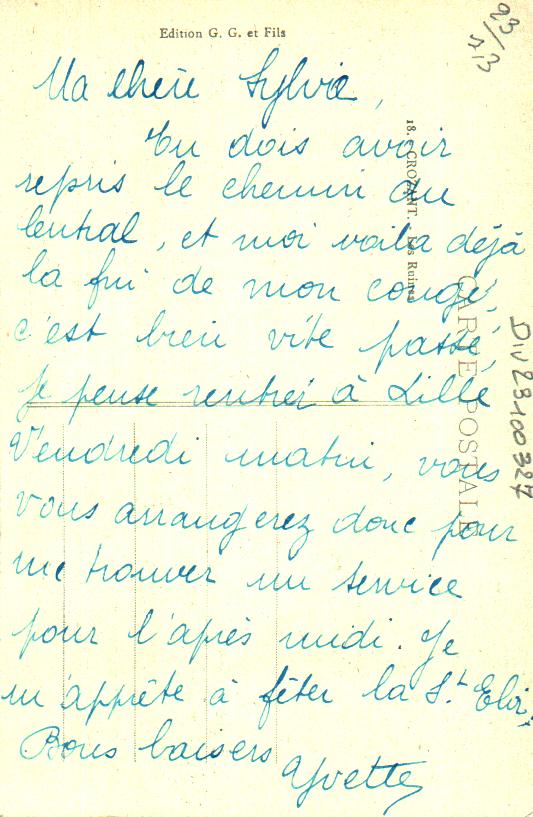 Edition G. G. et Fils
23/
5/3
Ma chère Sylvie,
Tu dois avoir
repris le chemin du
central, et moi voilà déjà
la fin de mon congé,
c'est bien vite passé,
je pense rentrer à Lille
Vendredi matin, vous
vous arrangerez donc pour
me trouver un service
pour l'après midi. Je
m'apprête à fêter la St. Eloi,
Bons baisers
Yvette
18. - CROZANT. - Les Ruines
CARTE POSTALE
DIV23100327